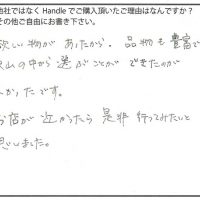 他社ではなく Handle でご購入頂いたご理由はなんですか？
その他ご自由にお書き下さい。
欲しい物があったから。品物も豊富で
沢山の中から選ぶことができたのが
かったです。
お店が近かったら是非行ってみたいと
思しました。